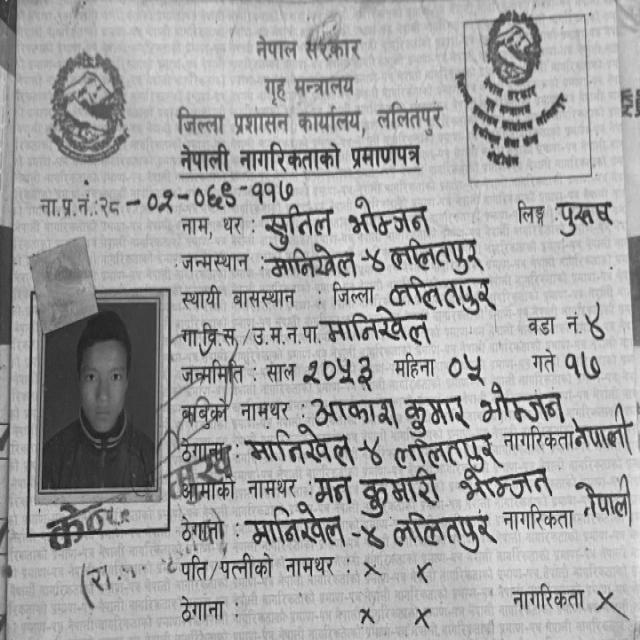 नेपाल सरकार
गृह मन्त्रालय
जिल्ला प्रशासन कार्यालय, ललितपुर
नेपाली नागरिकताको प्रमाणपत्र
ना.प्र.नं.: २८-०२-०६९-११७
नाम, थर : सुनिल भोम्जन लिङ्ग : पुरूष
जन्मस्थान : मानिखेल -४ ललितपुर
स्थायी बासस्थान : जिल्ला ललितपुर
गा.वि.स./उ.म.न.पा. मानिखेल वडा नं. ४
जन्ममिति : साल २०५३ महिना ०५ गते १७
बाबुको नामथर : आकाश कुमार भोम्जन
ठेगाना : मानिखेल -४ ललितपुर नागरिकता नेपाली
आमाको नामथर : मन कुमारी भोम्जन
ठेगाना : मानिखेल -४ ललितपुर नागरिकता नेपाली
पति/पत्नीको नामथर : x x
ठेगाना : x x नागरिकता x